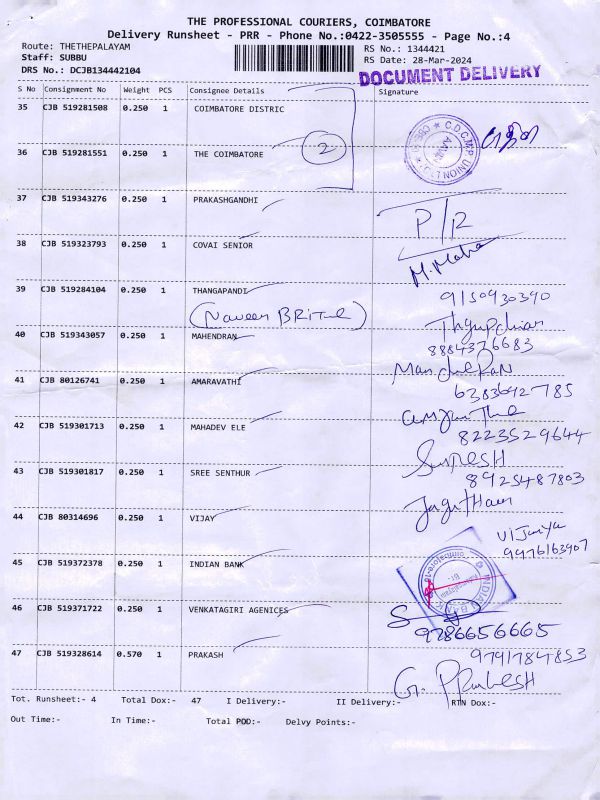 THE PROFESSIONAL COURIERS, COIMBATORE
Delivery Runsheet - PRR - Phone No.:0422-3505555 - Page No.:4
Route: THETHEPALAYAM
RS No.: 1344421
Staff: SUBBU
RS Date: 28-Mar-2024
DRS No.: DCJB134442104
DOCUMENT DELIVERY
S No Consignment No Weight PCS Consignee Details Signature
35 CJB 519281508 0.250 1 COIMBATORE DISTRIC
36 CJB 519281551 0.250 1 THE COIMBATORE 2
C.D.C.M.P UNION LTD
37 CJB 519343276 0.250 1 PRAKASHGANDHI
P/R
38 CJB 519323793 0.250 1 COVAI SENIOR
M.Maha
39 CJB 519284104 0.250 1 THANGAPANDI
9150930390
(Naveen BRITUL)
40 CJB 519343057 0.250 1 MAHENDRAN
8884376683
41 CJB 80126741 0.250 1 AMARAVATHI
6383692785
42 CJB 519301713 0.250 1 MAHADEV ELE
8223529644
43 CJB 519301817 0.250 1 SREE SENTHUR
SURESH
8925487803
44 CJB 80314696 0.250 1 VIJAY
Vijaya
9976163907
45 CJB 519372378 0.250 1 INDIAN BANK
INDIAN BANK
46 CJB 519371722 0.250 1 VENKATAGIRI AGENICES
9786656665
47 CJB 519328614 0.570 1 PRAKASH
9791784853
G. PRakesH
Tot. Runsheet:- 4 Total Dox:- 47 I Delivery:- II Delivery:- RTN Dox:-
Out Time:- In Time:- Total POD:- Delvy Points:-